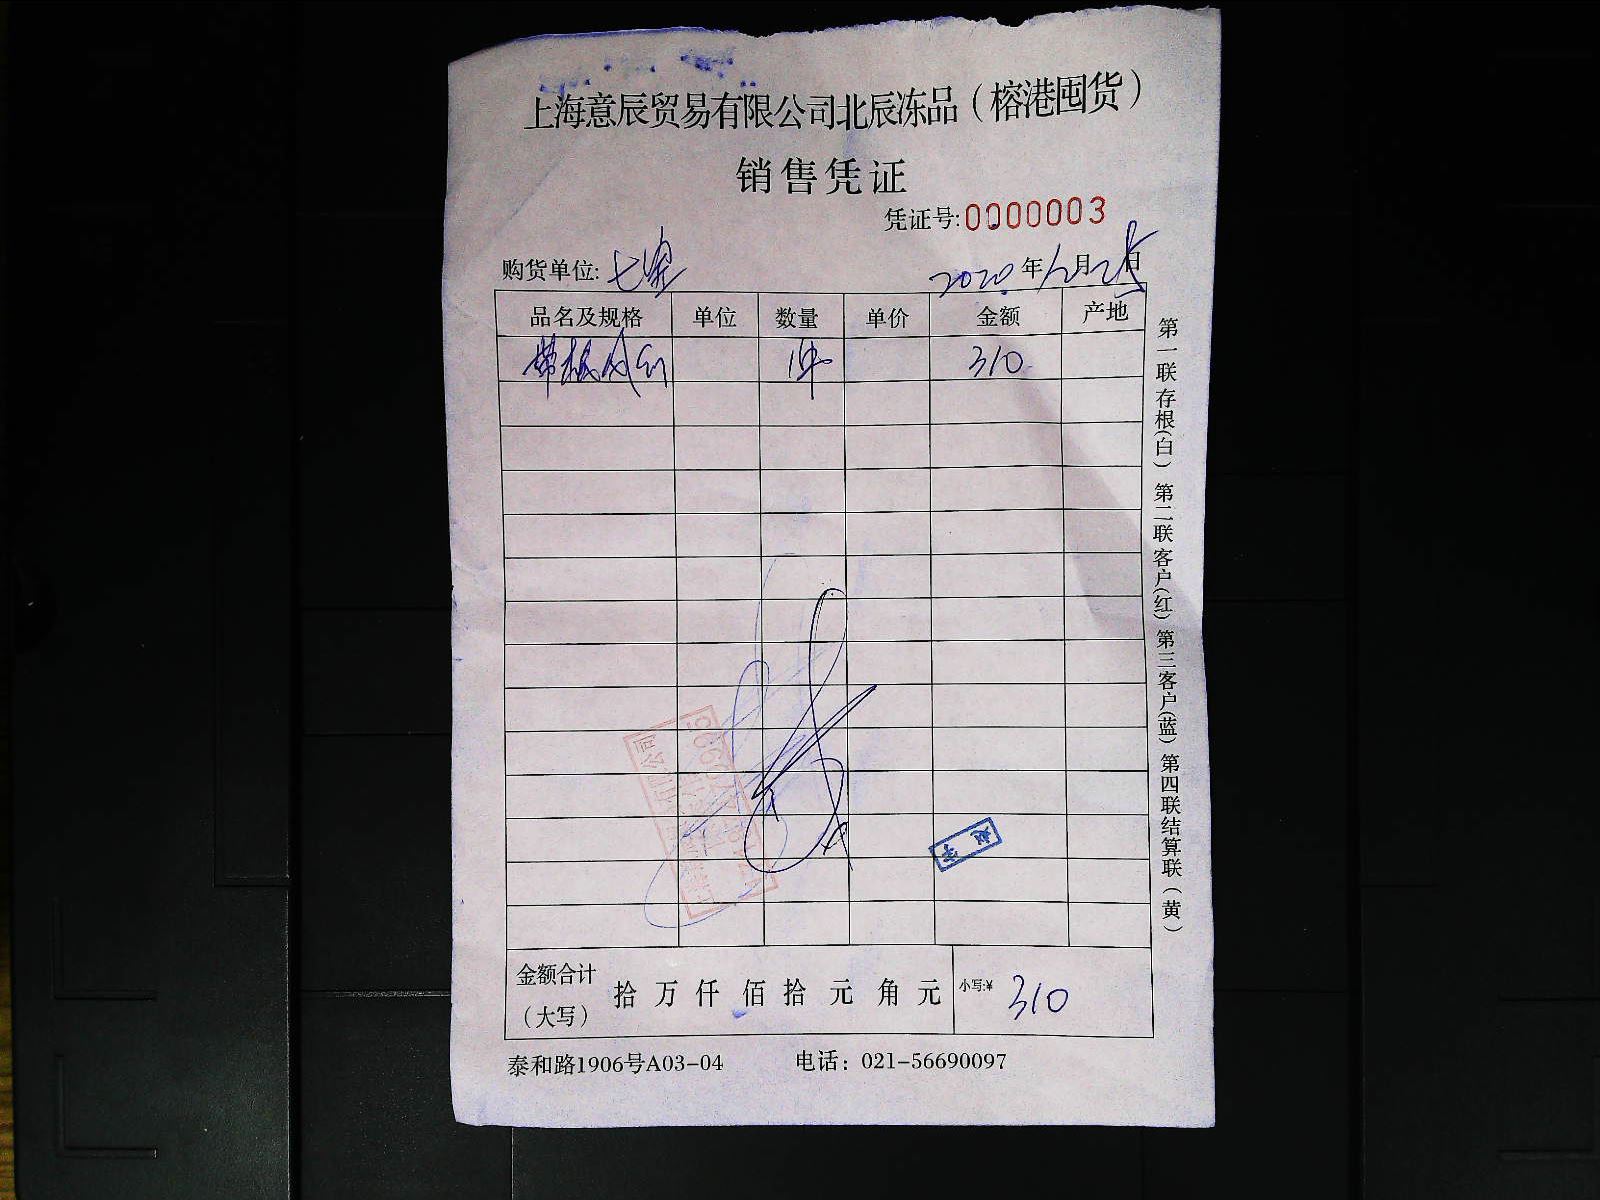 上海意辰贸易有限公司北辰冻品（榕港囤货）
销售凭证
凭证号:0000003
购货单位: 七宝
2020年12月25日
品名及规格 单位 数量 单价 金额 产地
1件 310
金额合计（大写） 拾 万 仟 佰 拾 元 角 元 小写:¥ 310
泰和路1906号A03-04 电话：021-56690097
第一联存根(白) 第二联客户(红) 第三客户(蓝) 第四联结算联(黄)